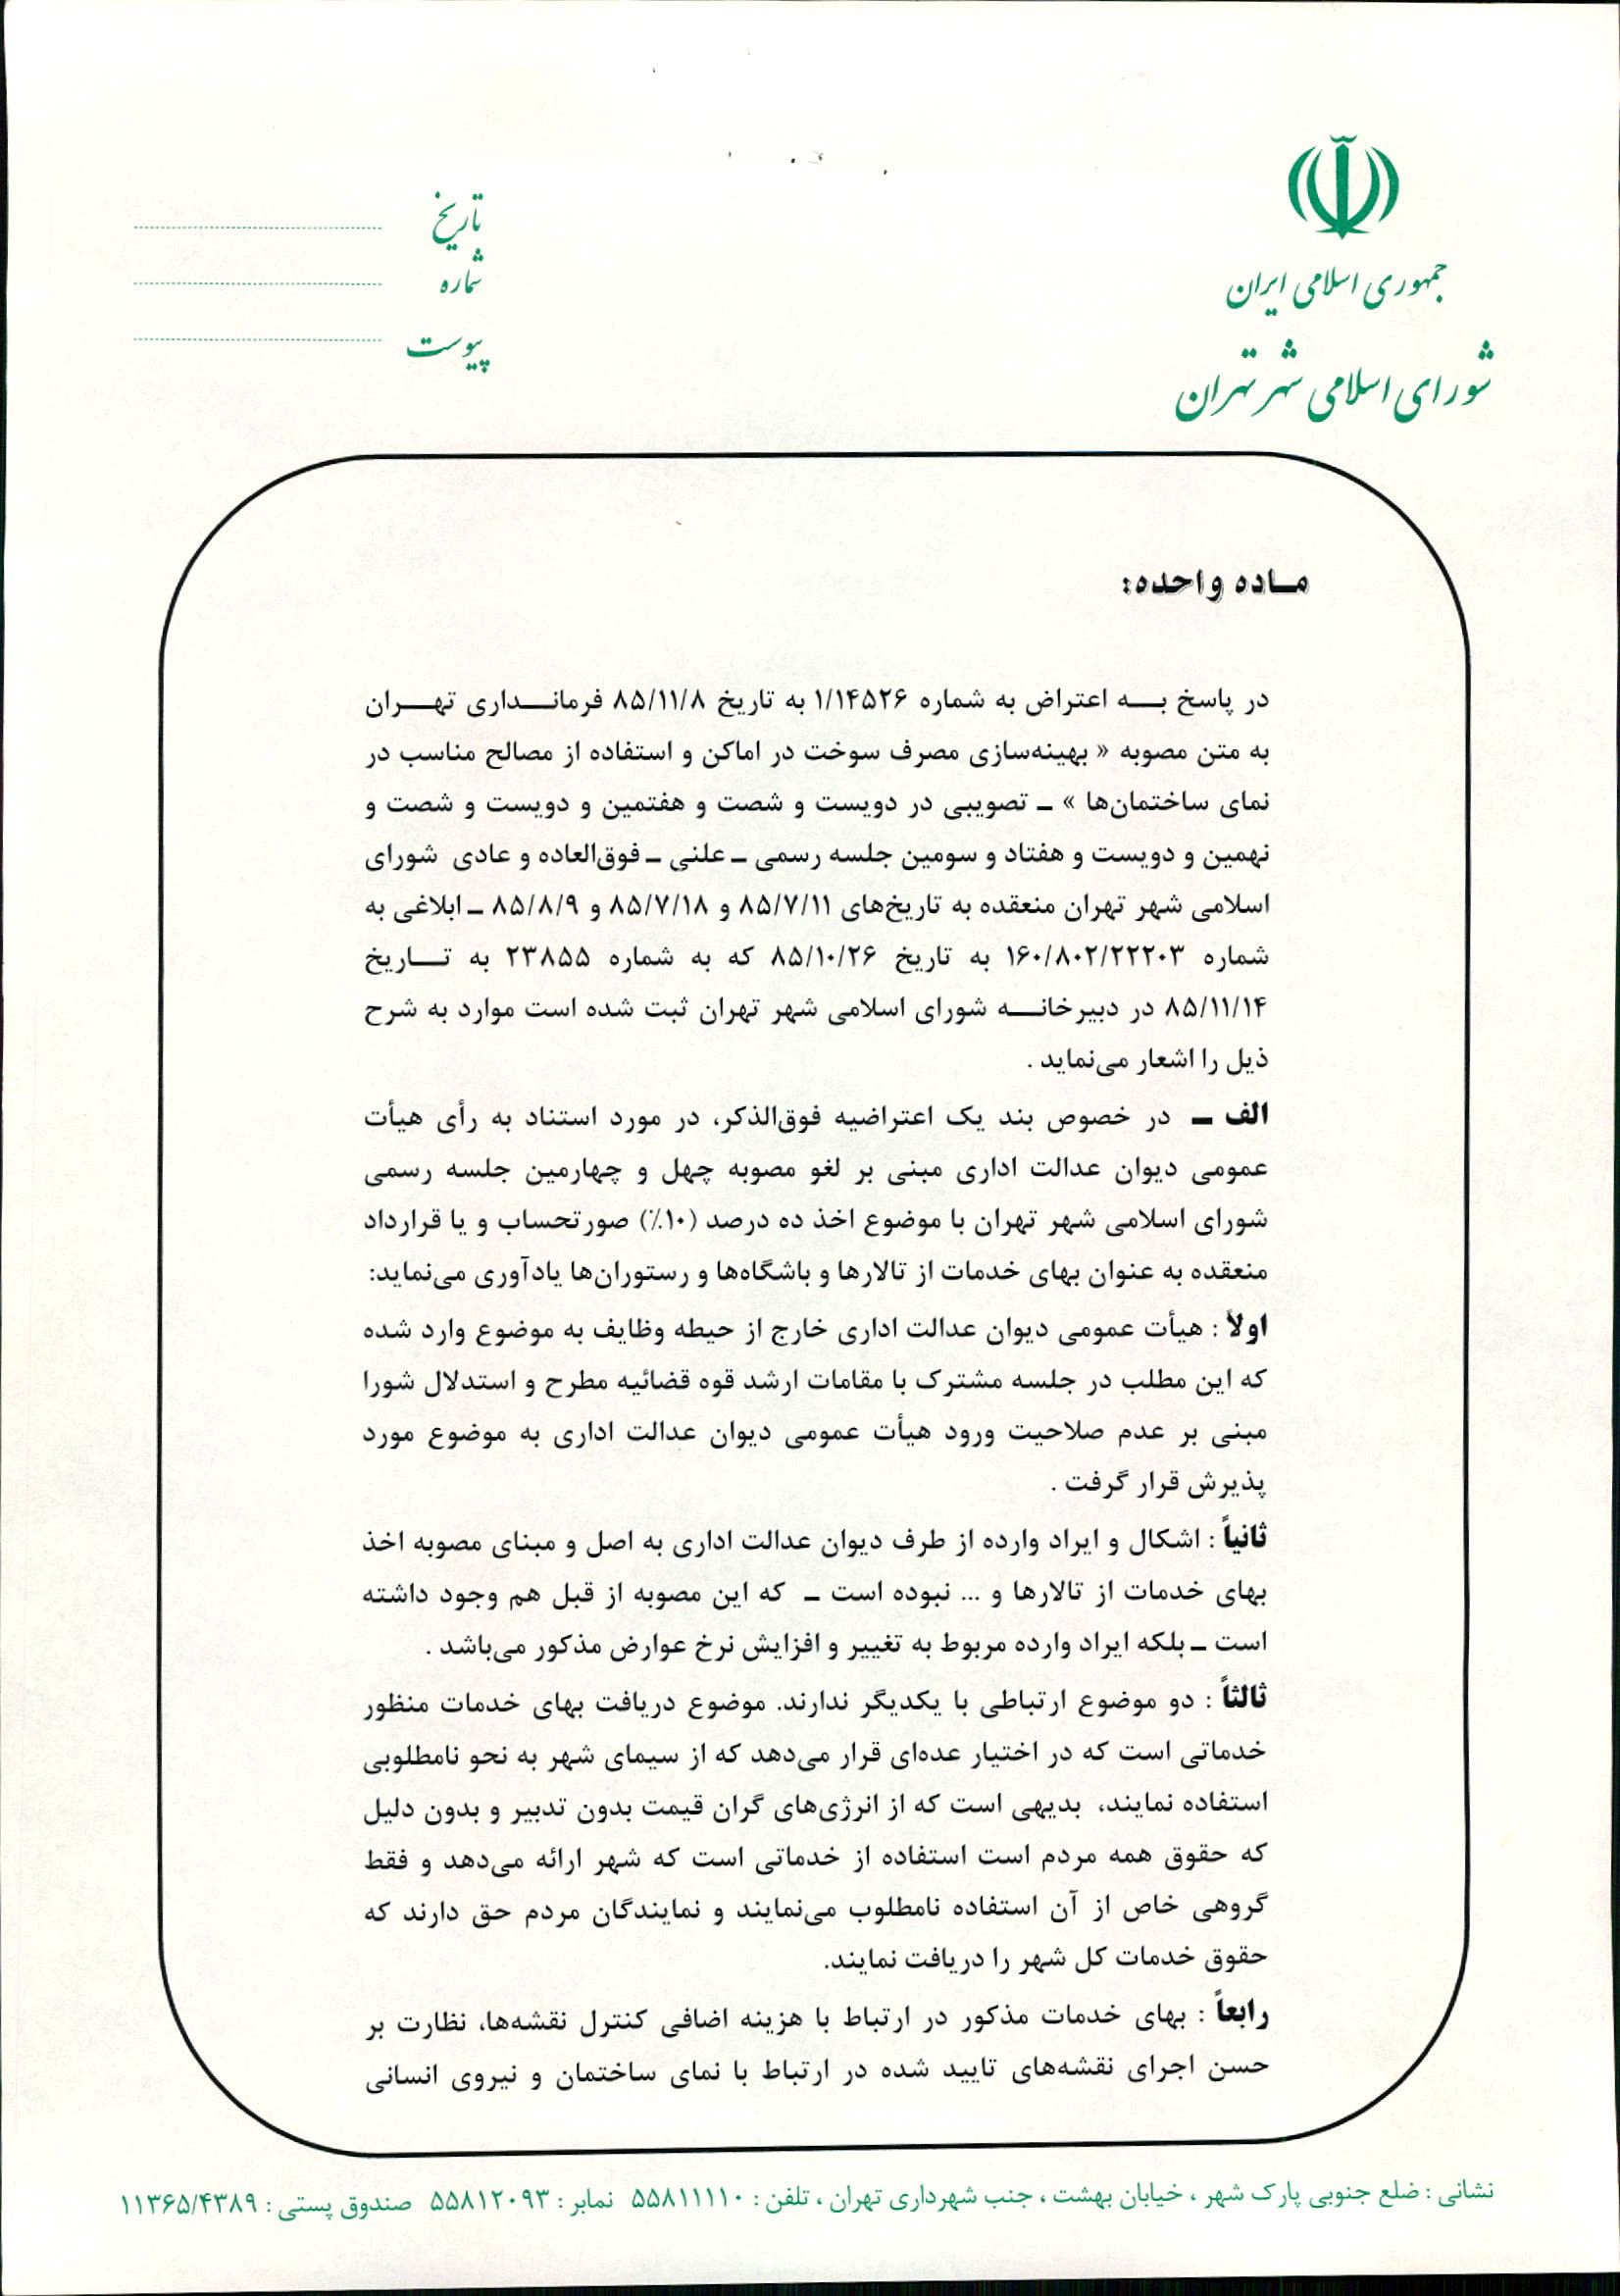 جمهوری اسلامی ایران
شورای اسلامی شهر تهران
تاریخ
شماره
پیوست
ماده واحده:
در پاسخ به اعتراض به شماره ۱/۱۴۵۲۶ به تاریخ ۸۵/۱۱/۸ فرمانداری تهران
به متن مصوبه « بهینه‌سازی مصرف سوخت در اماکن و استفاده از مصالح مناسب در
نمای ساختمان‌ها » ـ تصویبی در دویست و شصت و هفتمین و دویست و شصت و
نهمین و دویست و هفتاد و سومین جلسه رسمی ـ علنی ـ فوق‌العاده و عادی شورای
اسلامی شهر تهران منعقده به تاریخ‌های ۸۵/۷/۱۱ و ۸۵/۷/۱۸ و ۸۵/۸/۹ ـ ابلاغی به
شماره ۱۶۰/۸۰۲/۲۲۲۰۳ به تاریخ ۸۵/۱۰/۲۶ که به شماره ۲۳۸۵۵ به تاریخ
۸۵/۱۱/۱۴ در دبیرخانه شورای اسلامی شهر تهران ثبت شده است موارد به شرح
ذیل را اشعار می‌نماید .
الف ـ در خصوص بند یک اعتراضیه فوق‌الذکر، در مورد استناد به رأی هیأت
عمومی دیوان عدالت اداری مبنی بر لغو مصوبه چهل و چهارمین جلسه رسمی
شورای اسلامی شهر تهران با موضوع اخذ ده درصد (۱۰٪) صورتحساب و یا قرارداد
منعقده به عنوان بهای خدمات از تالارها و باشگاه‌ها و رستوران‌ها یادآوری می‌نماید:
اولاً : هیأت عمومی دیوان عدالت اداری خارج از حیطه وظایف به موضوع وارد شده
که این مطلب در جلسه مشترک با مقامات ارشد قوه قضائیه مطرح و استدلال شورا
مبنی بر عدم صلاحیت ورود هیأت عمومی دیوان عدالت اداری به موضوع مورد
پذیرش قرار گرفت .
ثانیاً : اشکال و ایراد وارده از طرف دیوان عدالت اداری به اصل و مبنای مصوبه اخذ
بهای خدمات از تالارها و ... نبوده است ـ که این مصوبه از قبل هم وجود داشته
است ـ بلکه ایراد وارده مربوط به تغییر و افزایش نرخ عوارض مذکور می‌باشد .
ثالثاً : دو موضوع ارتباطی با یکدیگر ندارند. موضوع دریافت بهای خدمات منظور
خدماتی است که در اختیار عده‌ای قرار می‌دهد که از سیمای شهر به نحو نامطلوبی
استفاده نمایند، بدیهی است که از انرژی‌های گران قیمت بدون تدبیر و بدون دلیل
که حقوق همه مردم است استفاده از خدماتی است که شهر ارائه می‌دهد و فقط
گروهی خاص از آن استفاده نامطلوب می‌نمایند و نمایندگان مردم حق دارند که
حقوق خدمات کل شهر را دریافت نمایند.
رابعاً : بهای خدمات مذکور در ارتباط با هزینه اضافی کنترل نقشه‌ها، نظارت بر
حسن اجرای نقشه‌های تایید شده در ارتباط با نمای ساختمان و نیروی انسانی
نشانی : ضلع جنوبی پارک شهر ، خیابان بهشت ، جنب شهرداری تهران ، تلفن : ۵۵۸۱۱۱۱۰ نمابر : ۵۵۸۱۲۰۹۳ صندوق پستی : ۱۱۳۶۵/۴۳۸۹